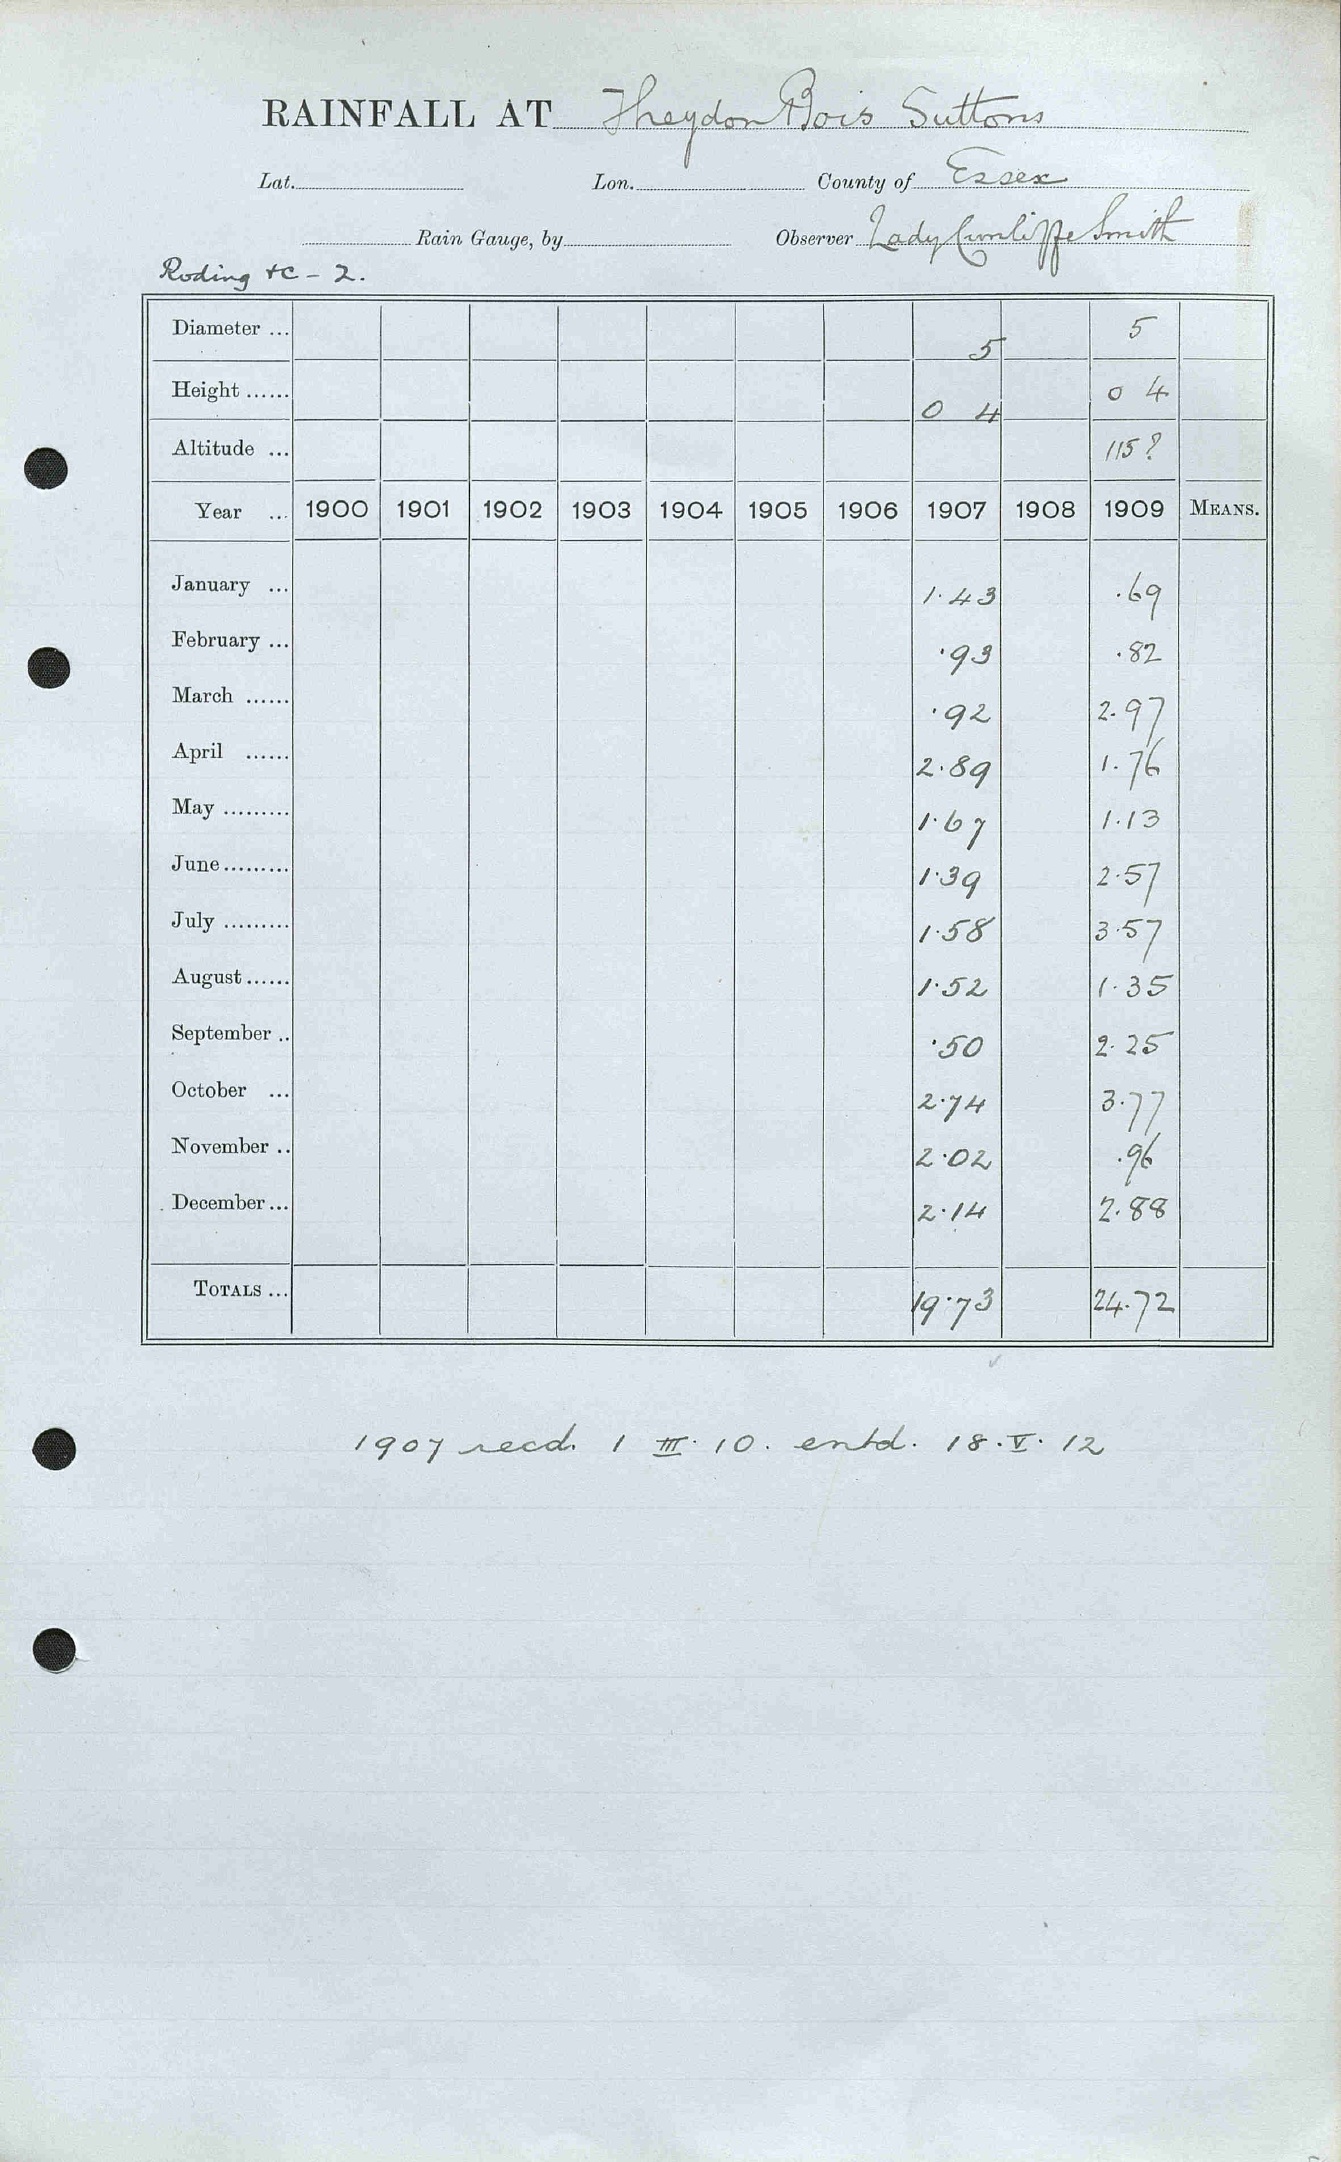 RAINFALL AT Theydon Bois Suttons
Lat. Lon. County of Essex
Rain Gauge, by Observer Lady Cunliffe Smith
Roding &c - 2.
Diameter ... 5 5
Height ...... 0 4 0 4
Altitude ... 115?
Year ... 1900 1901 1902 1903 1904 1905 1906 1907 1908 1909 MEANS.
January ... 1.43 .69
February ... .93 .82
March ...... .92 2.97
April ...... 2.89 1.76
May ......... 1.67 1.13
June......... 1.39 2.57
July ......... 1.58 3.57
August...... 1.52 1.35
September .. .50 2.25
October ... 2.74 3.77
November .. 2.02 .96
December... 2.14 2.88
TOTALS ... 19.73 24.72
1907 recd. 1 III. 10. entd. 18.V.12